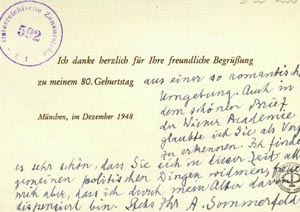 Österreichische Zensurstelle
592
Ich danke herzlich für Ihre freundliche Begrüßung
zu meinem 80. Geburtstag aus einer so romantischen
Umgebung. Auch in
dem schönen Brief
der Wiener Academie
glaubte ich Sie als
zu erkennen. Ich finde
es sehr schön, dass Sie sich in dieser Zeit
gemeinen politischen Dingen widmen,
mich aber, dass ich durch mein Alter davon
dispensiert bin. Stets Ihr A. Sommerfeld
München, im Dezember 1948